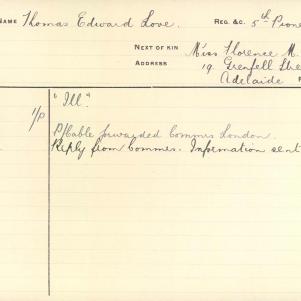 NAME Thomas Edward Love. REG. &C. 5th Pione
NEXT OF KIN Miss Florence M.
ADDRESS 19 Grenfell Stre
Adelaide
"Ill."
1/P
P/Cable forwarded Commrs London.
Reply from Commrs. Information sent